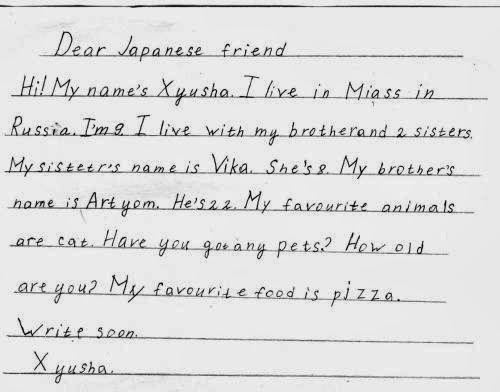 Dear Japanese friend
Hi! My name's Xyusha. I live in Miass in
Russia. I'm 9. I live with my brother and 2 sisters.
My sistetr's name is Vika. She's 8. My brother's
name is Artyom. He's 22. My favourite animals
are cat. Have you got any pets? How old
are you? My favourite food is pizza.
Write soon.
Xyusha.